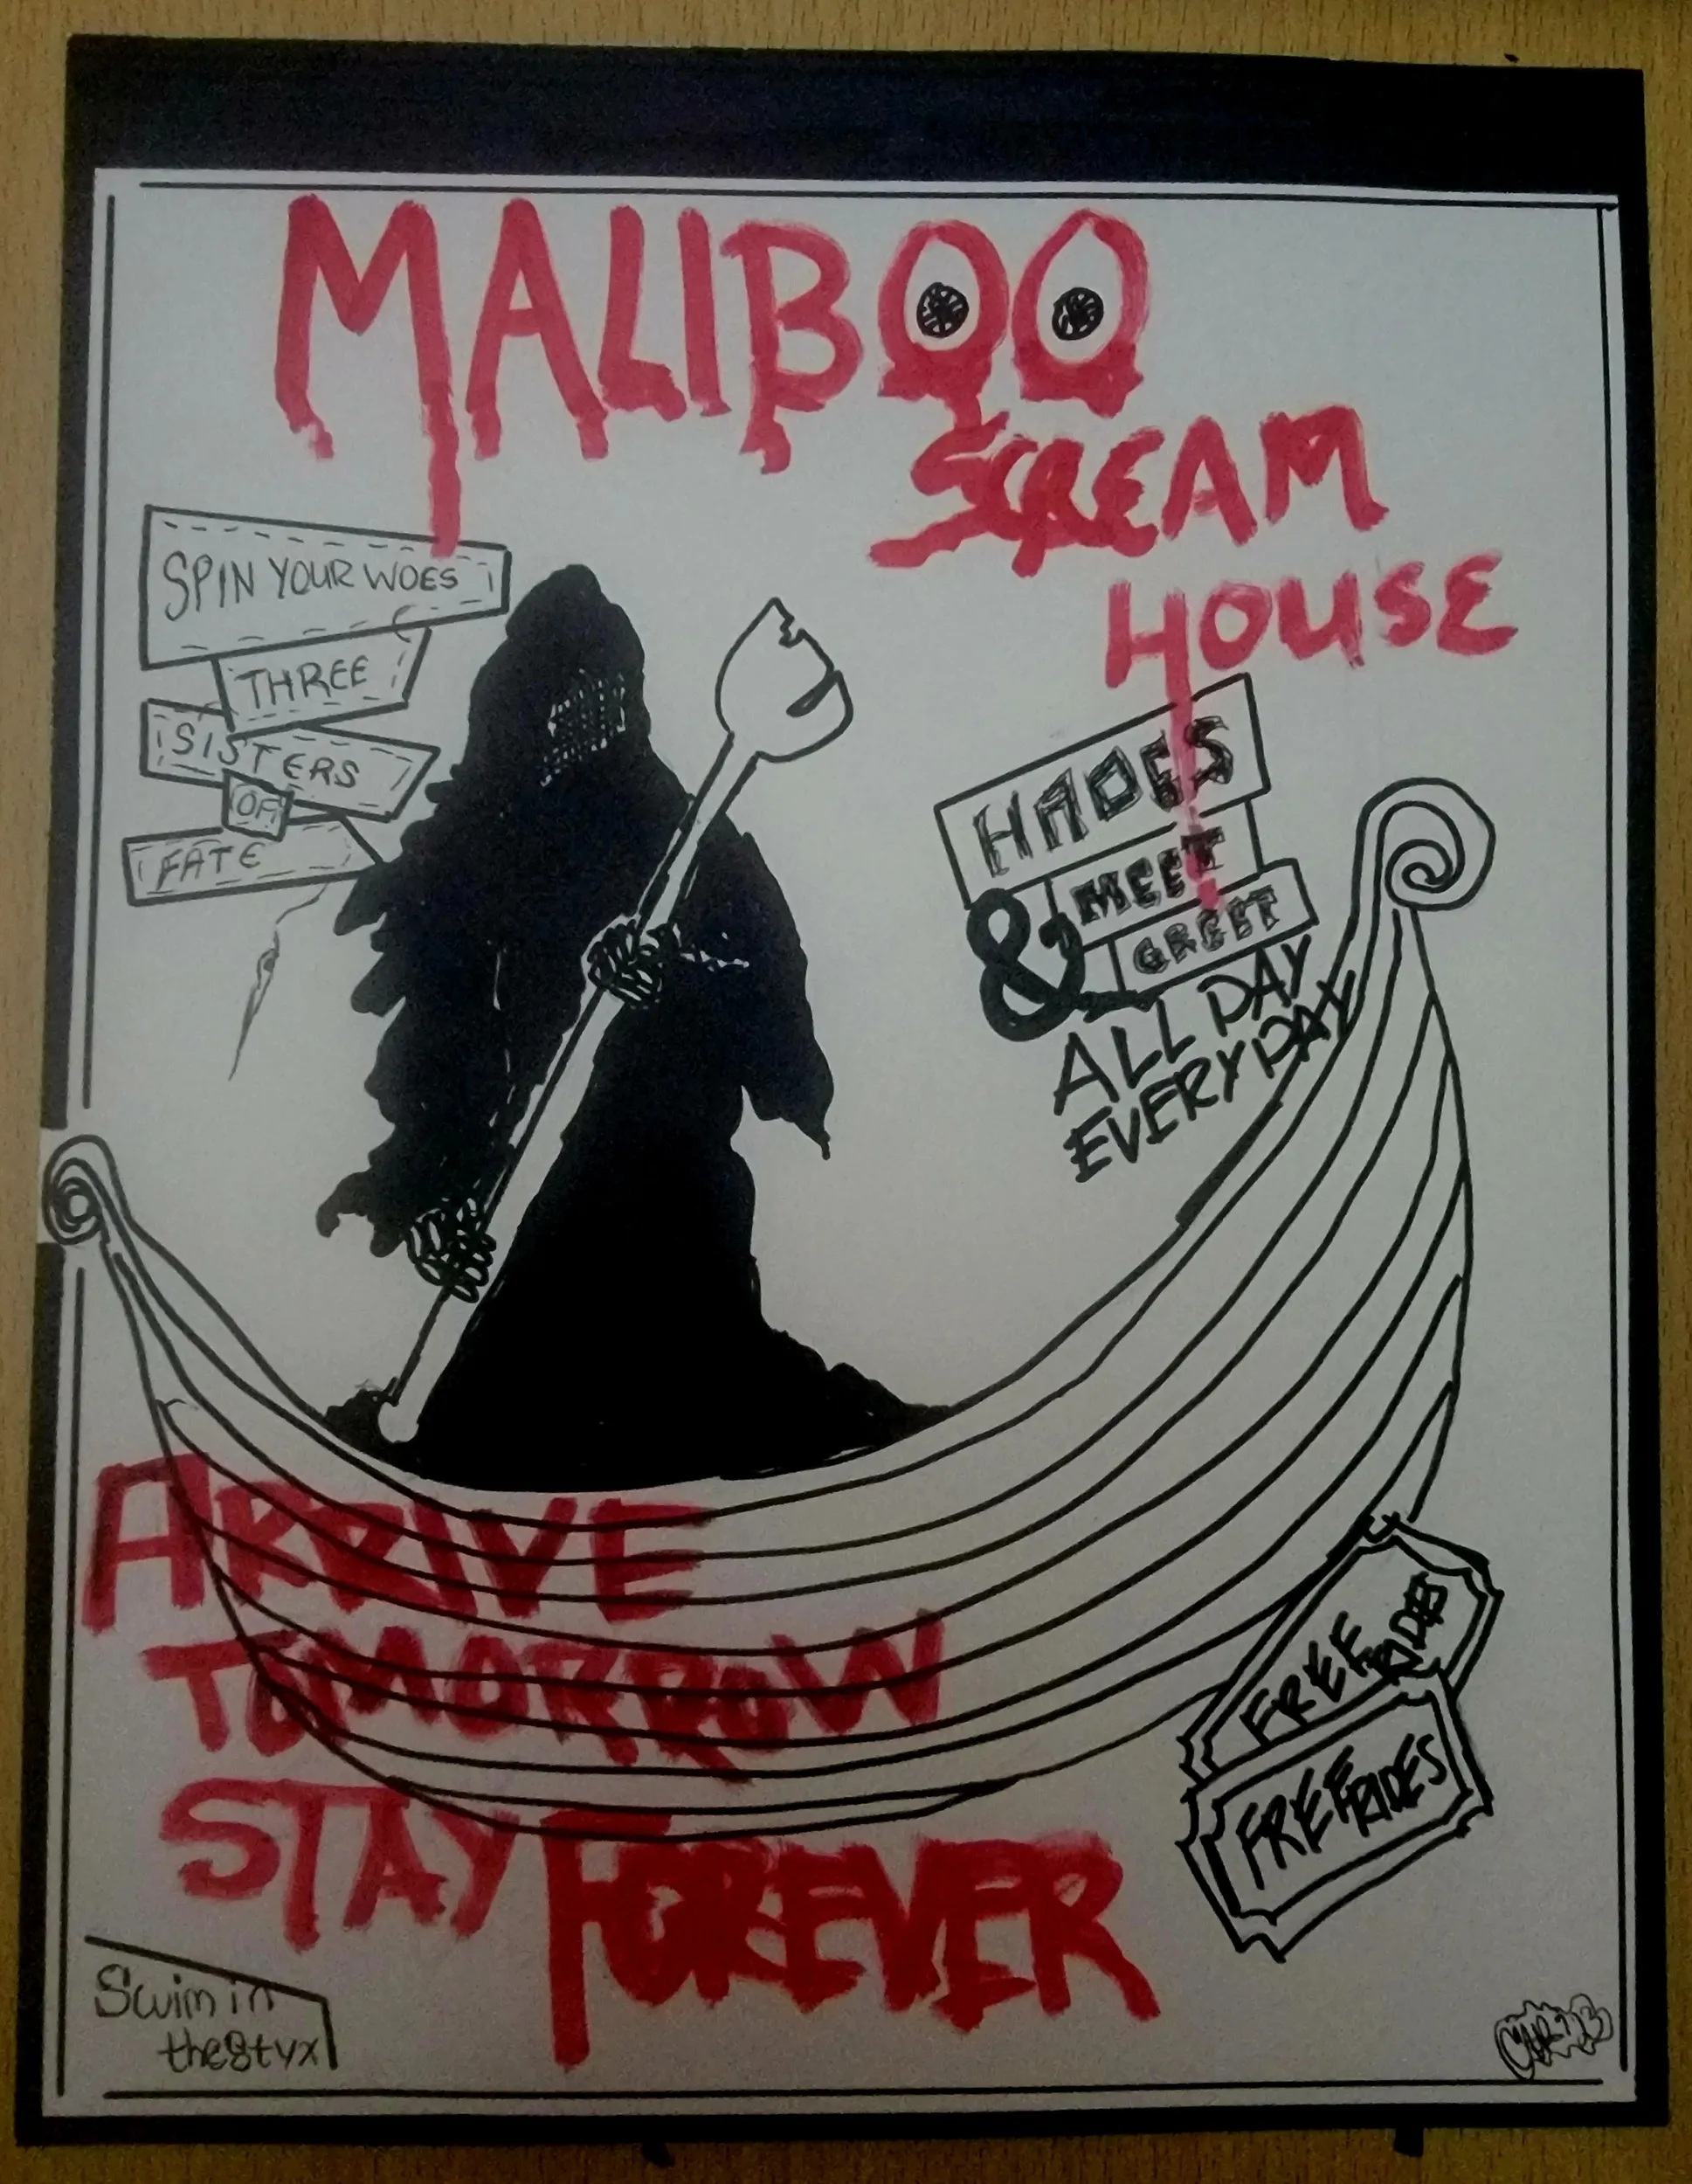 MALIBOO
SCREAM
HOUSE
SPIN YOUR WOES
THREE
SISTERS
OF
FATE
HADES
MEET
&
GREET
ALL DAY
EVERYDAY
ARRIVE
TOMORROW
STAY FOREVER
FREE RIDES
FREE RIDES
Swim in
the Styx